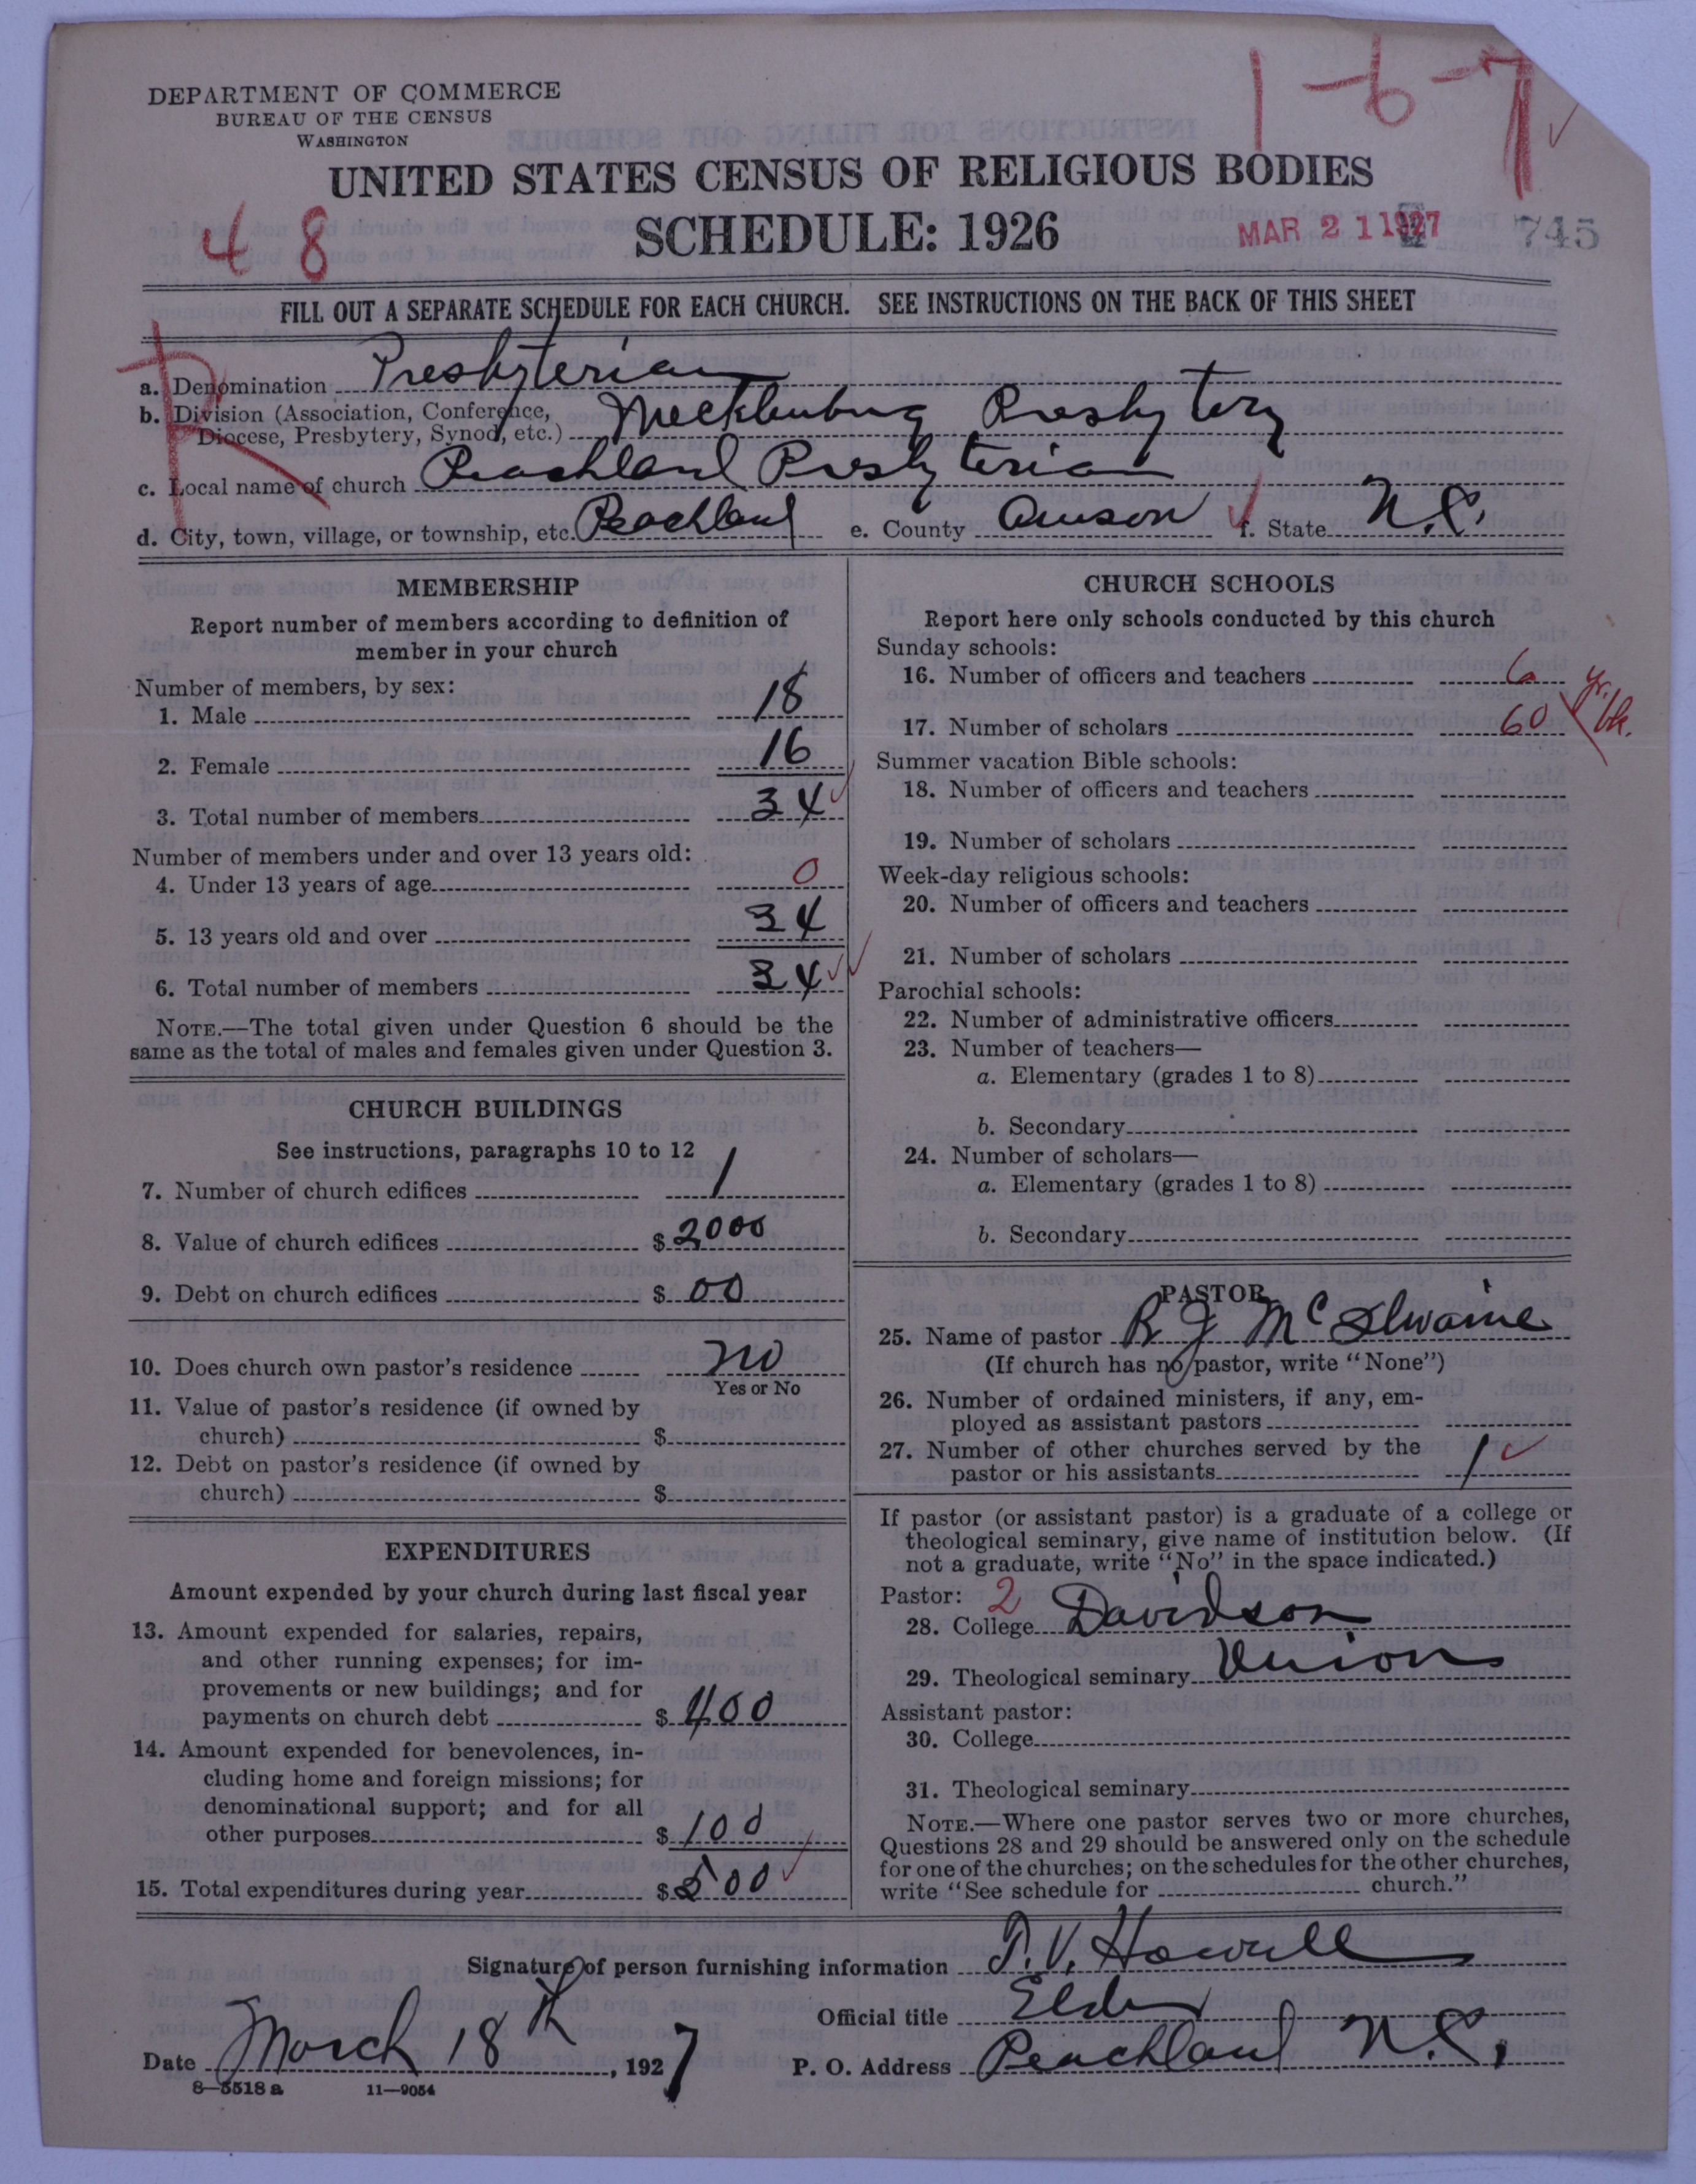 1-6-7
DEPARTMENT OF COMMERCE
BUREAU OF THE CENSUS
WASHINGTON
UNITED STATES CENSUS OF RELIGIOUS BODIES
SCHEDULE: 1926
4 8
MAR 21 1927
745
FILL OUT A SEPARATE SCHEDULE FOR EACH CHURCH. SEE INSTRUCTIONS ON THE BACK OF THIS SHEET
a. Denomination Presbyterian
b. Division (Association, Conference, Diocese, Presbytery, Synod, etc.) Mecklenburg Presbytery
c. Local name of church Peachland Presbyterian
d. City, town, village, or township, etc. Peachland e. County Anson f. State N.C.
MEMBERSHIP
Report number of members according to definition of
member in your church
Number of members, by sex:
1. Male 18
2. Female 16
3. Total number of members 34
Number of members under and over 13 years old:
4. Under 13 years of age 0
5. 13 years old and over 34
6. Total number of members 34
NOTE.—The total given under Question 6 should be the
same as the total of males and females given under Question 3.
CHURCH BUILDINGS
See instructions, paragraphs 10 to 12
7. Number of church edifices 1
8. Value of church edifices $ 2000
9. Debt on church edifices $ 00
10. Does church own pastor's residence no
Yes or No
11. Value of pastor's residence (if owned by
church) $
12. Debt on pastor's residence (if owned by
church) $
EXPENDITURES
Amount expended by your church during last fiscal year
13. Amount expended for salaries, repairs,
and other running expenses; for im-
provements or new buildings; and for
payments on church debt $ 400
14. Amount expended for benevolences, in-
cluding home and foreign missions; for
denominational support; and for all
other purposes $ 100
15. Total expenditures during year $ 500
CHURCH SCHOOLS
Report here only schools conducted by this church
Sunday schools:
16. Number of officers and teachers 6
17. Number of scholars 60
yr. bk.
Summer vacation Bible schools:
18. Number of officers and teachers
19. Number of scholars
Week-day religious schools:
20. Number of officers and teachers
21. Number of scholars
Parochial schools:
22. Number of administrative officers
23. Number of teachers—
a. Elementary (grades 1 to 8)
b. Secondary
24. Number of scholars—
a. Elementary (grades 1 to 8)
b. Secondary
PASTOR
25. Name of pastor R J McIlwaine
(If church has no pastor, write "None")
26. Number of ordained ministers, if any, em-
ployed as assistant pastors
27. Number of other churches served by the
pastor or his assistants 1
If pastor (or assistant pastor) is a graduate of a college or
theological seminary, give name of institution below. (If
not a graduate, write "No" in the space indicated.)
Pastor: 2
28. College Davidson
29. Theological seminary Union
Assistant pastor:
30. College
31. Theological seminary
NOTE.—Where one pastor serves two or more churches,
Questions 28 and 29 should be answered only on the schedule
for one of the churches; on the schedules for the other churches,
write "See schedule for church."
Signature of person furnishing information T. V. Howell
Official title Elder
Date March 18th, 1927 P. O. Address Peachland N.C.
8—5518 a 11—9054